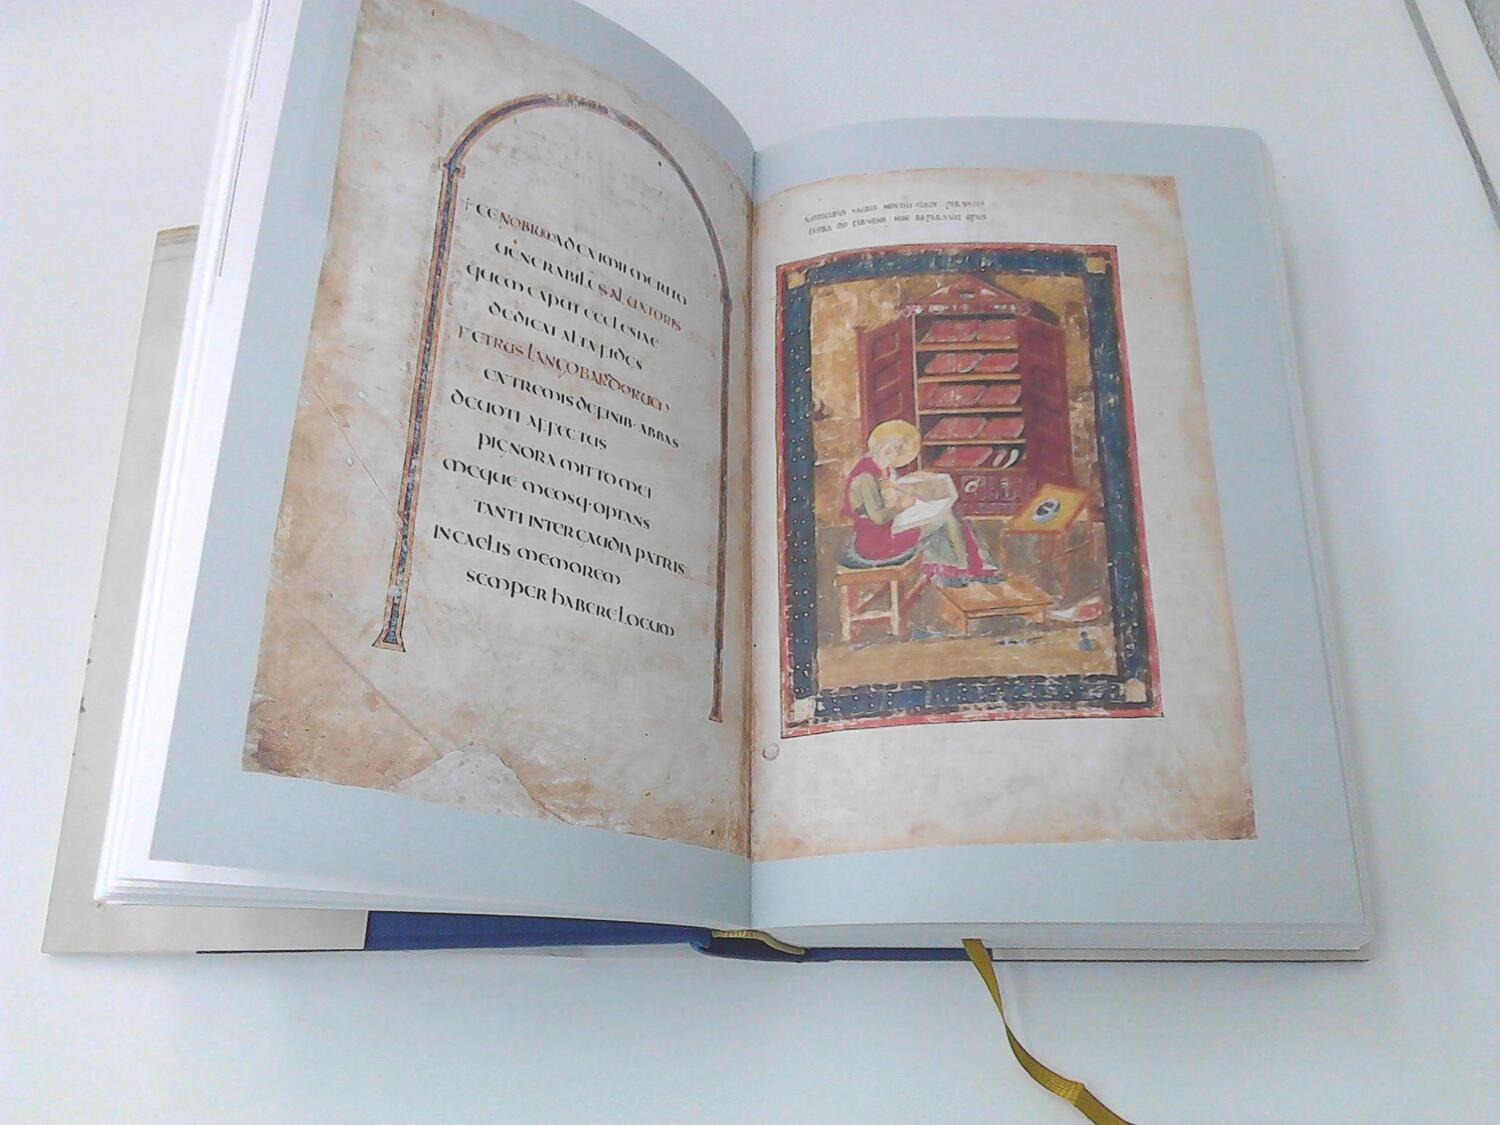 + CENOBIUM AD EXIMII MERITO
UENERABILE SALUATORIS
QUEM CAPUT ECCLESIAE
DEDICAT ALTA FIDES
PETRUS LANGOBARDORUM
EXTREMIS DE FINIB· ABBAS
DEUOTI AFFECTUS
PIGNORA MITTO MEI
MEQUE MEOSQ· OPTANS
TANTI INTER GAUDIA PATRIS
IN CAELIS MEMOREM
SEMPER HABERE LOCUM
CODICIBUS SACRIS HOSTILI CLADE PERUSTIS
ESDRA DO FERUENS HOC REPARAUIT OPUS